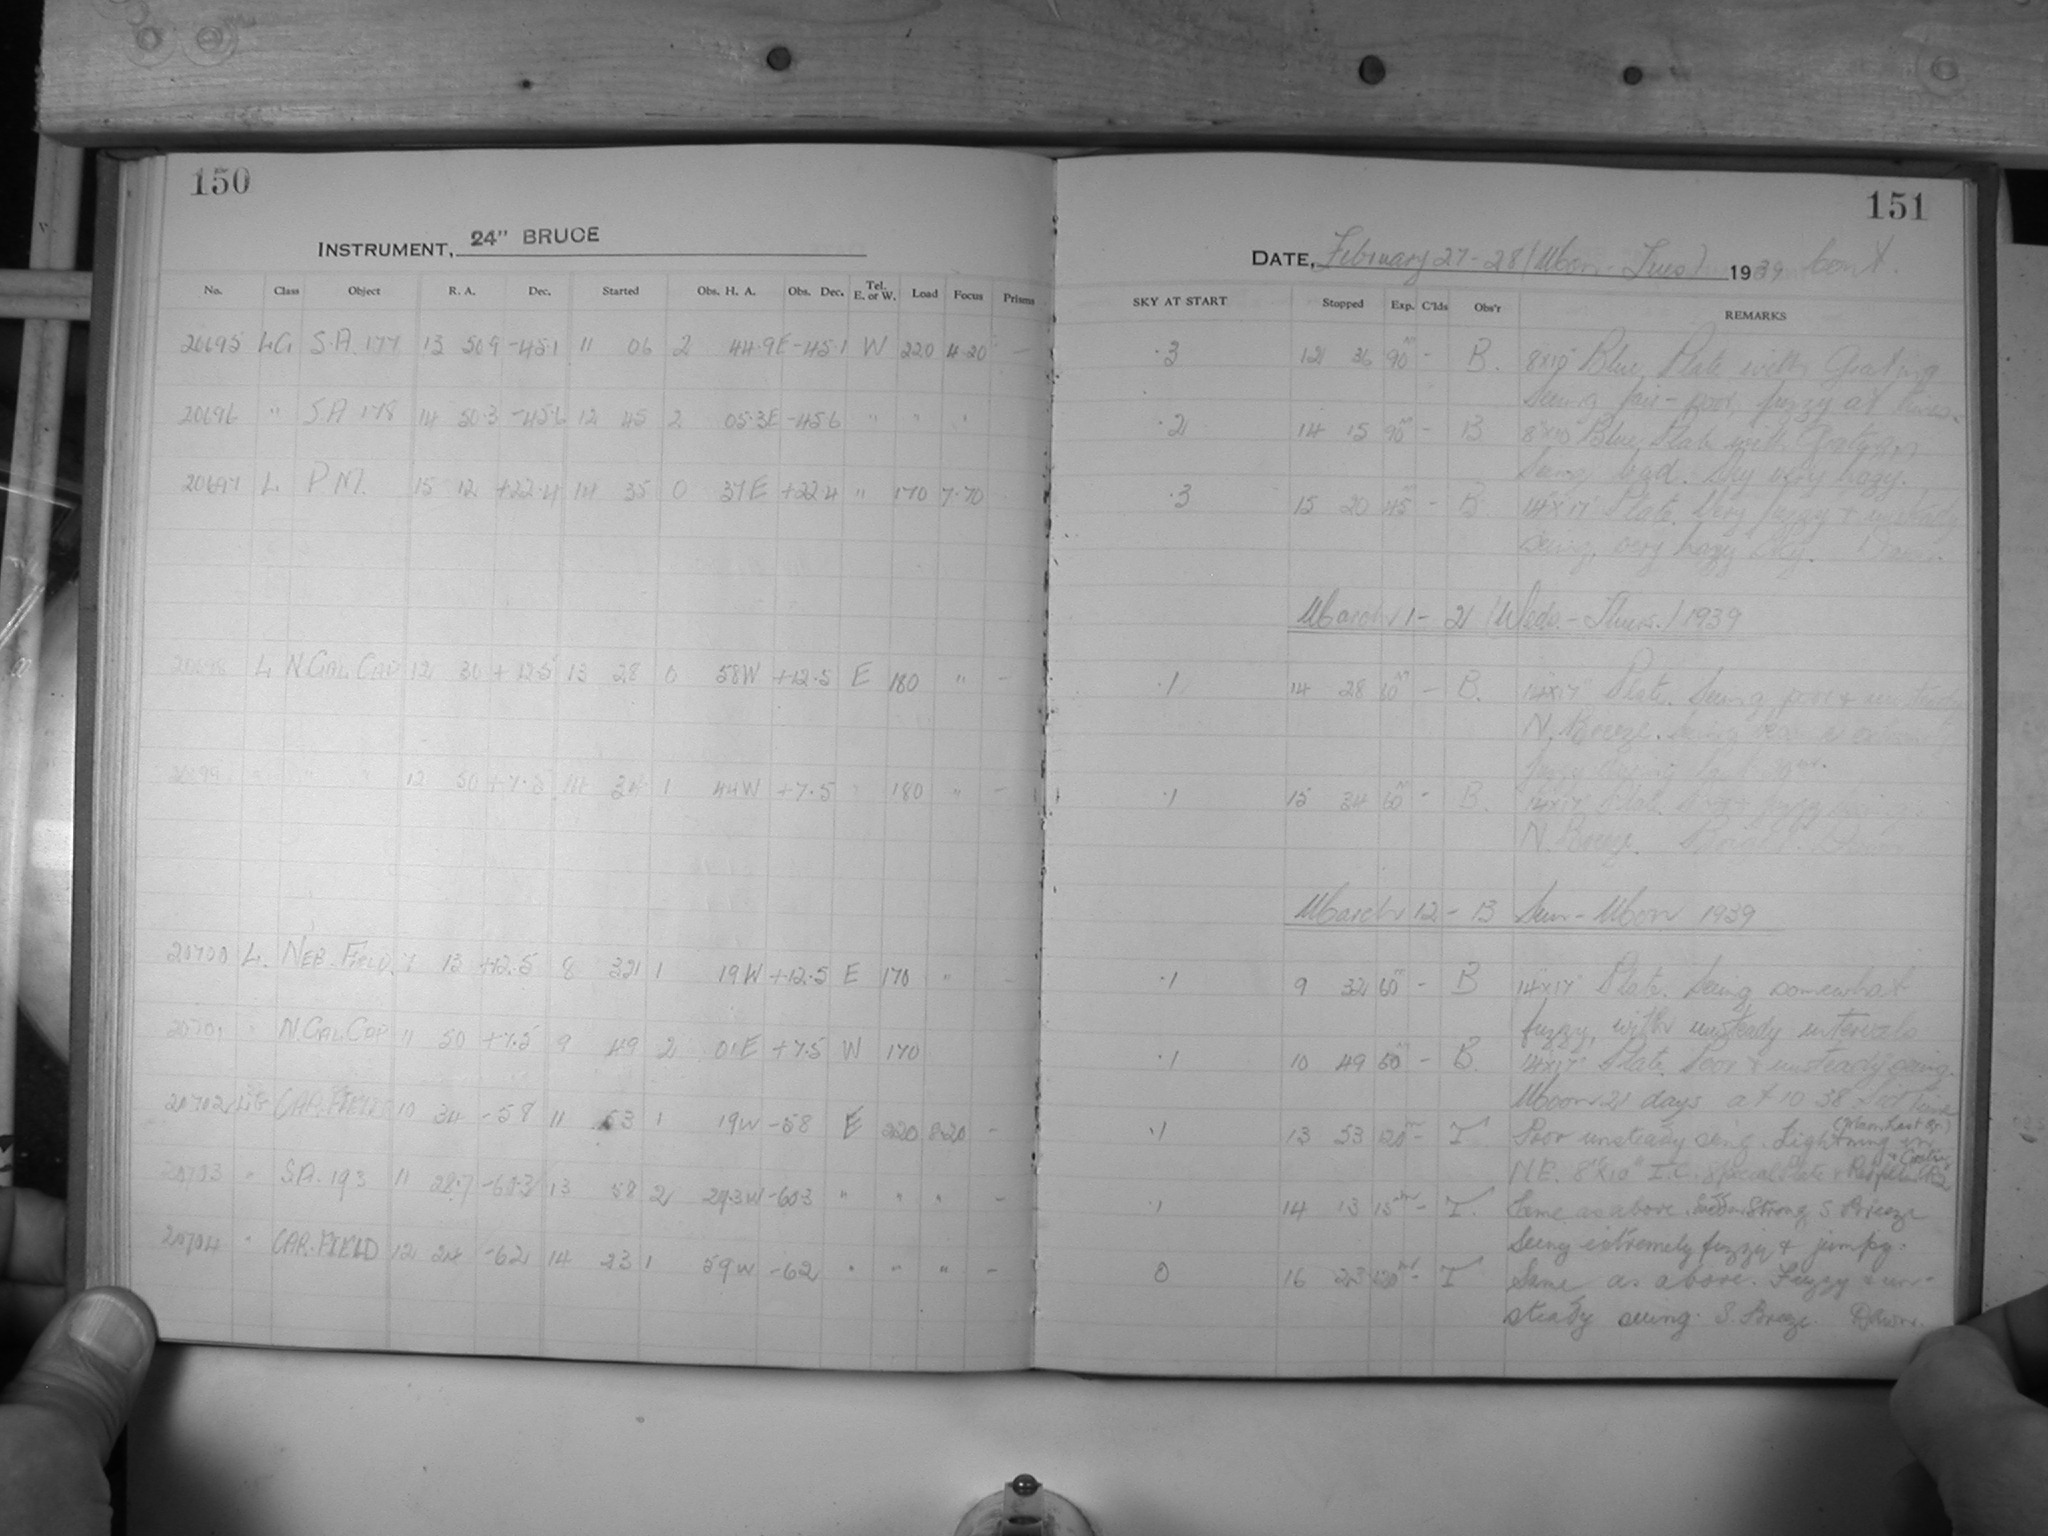 150
INSTRUMENT, 24" BRUCE
No. Class Object R. A. Dec. Started Obs. H. A. Obs. Dec. Tel. E. or W. Load Focus Prisms
20695 LG S.A. 177 13 50.9 -45.1 11 06 2 44.9E -45.1 W 220 4.20 -
20696 " S.A 178 14 50.3 -45.6 12 45 2 05.3E -45.6 " " "
20697 L P.M. 15 12 +22.4 14 35 0 37E +22.4 " 170 7.70
20698 L N.GAL.CAP 12 30 +12.5 13 28 0 58W +12.5 E 180 " -
20699 " " " 12 50 +7.5 14 34 1 44W +7.5 " 180 " -
20700 L. NEB. FIELD 7 13 +12.5 8 32 1 19W +12.5 E 170 " -
20701 " N.GAL.CAP 11 50 +7.5 9 49 2 01E +7.5 W 170
20702 LG CAR.FIELD 10 34 -58 11 53 1 19W -58 E 220 8.20 -
20703 " S.A. 193 11 28.7 -60.3 13 58 2 29.3W -60.3 " " " -
20704 " CAR.FIELD 12 24 -62 14 23 1 59W -62 " " " -
151
DATE, February 27-28 (Mon - Tues) 1939 Cont.
SKY AT START Stopped Exp. C'lds Obs'r REMARKS
.3 12 36 90m - B. 8x10" Blue Plate with Grating
Seeing fair - poor, fuzzy at times.
.2 14 15 90m - B 8"x10" Blue Plate with Grating
Seeing bad. Sky very hazy.
.3 15 20 45m - B. 14"x17" Plate. Very fuzzy & unsteady
seeing, very hazy sky. Dawn.
March 1 - 2 (Weds. - Thurs.) 1939
.1 14 28 60m - B. 14"x17" Plate. Seeing poor & unsteady
N. Breeze. Seeing
fuzzy during
.1 15 34 60m - B. 14"x17" Plate. fuzzy
N. Breeze. Dawn
March 12 - 13 Sun - Mon 1939
.1 9 32 60m - B 14"x17" Plate. Seeing somewhat
fuzzy, with unsteady intervals
.1 10 49 60m - B. 14"x17" Plate. Poor & unsteady seeing.
Moon 21 days at 10 38 Sid Time
(Moon Last Qr.)
.1 13 53 120m - T. Poor unsteady seeing. Lightning in
N.E. 8"x10" I.C. Special Plate &
.1 14 13 15m - T. Same as above. Strong S Breeze
Seeing extremely fuzzy & jumpy.
0 16 23 120m - T Same as above. Fuzzy & un-
steady seeing. S. Breeze. Dawn.